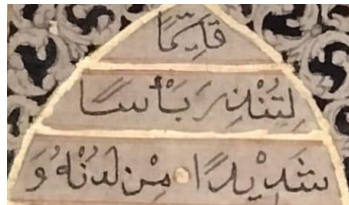 قَيِّمًا
لِتُنْذِرَ بَأْسًا
شَدِيْدًا مِنْ لَدُنْهُ وَ